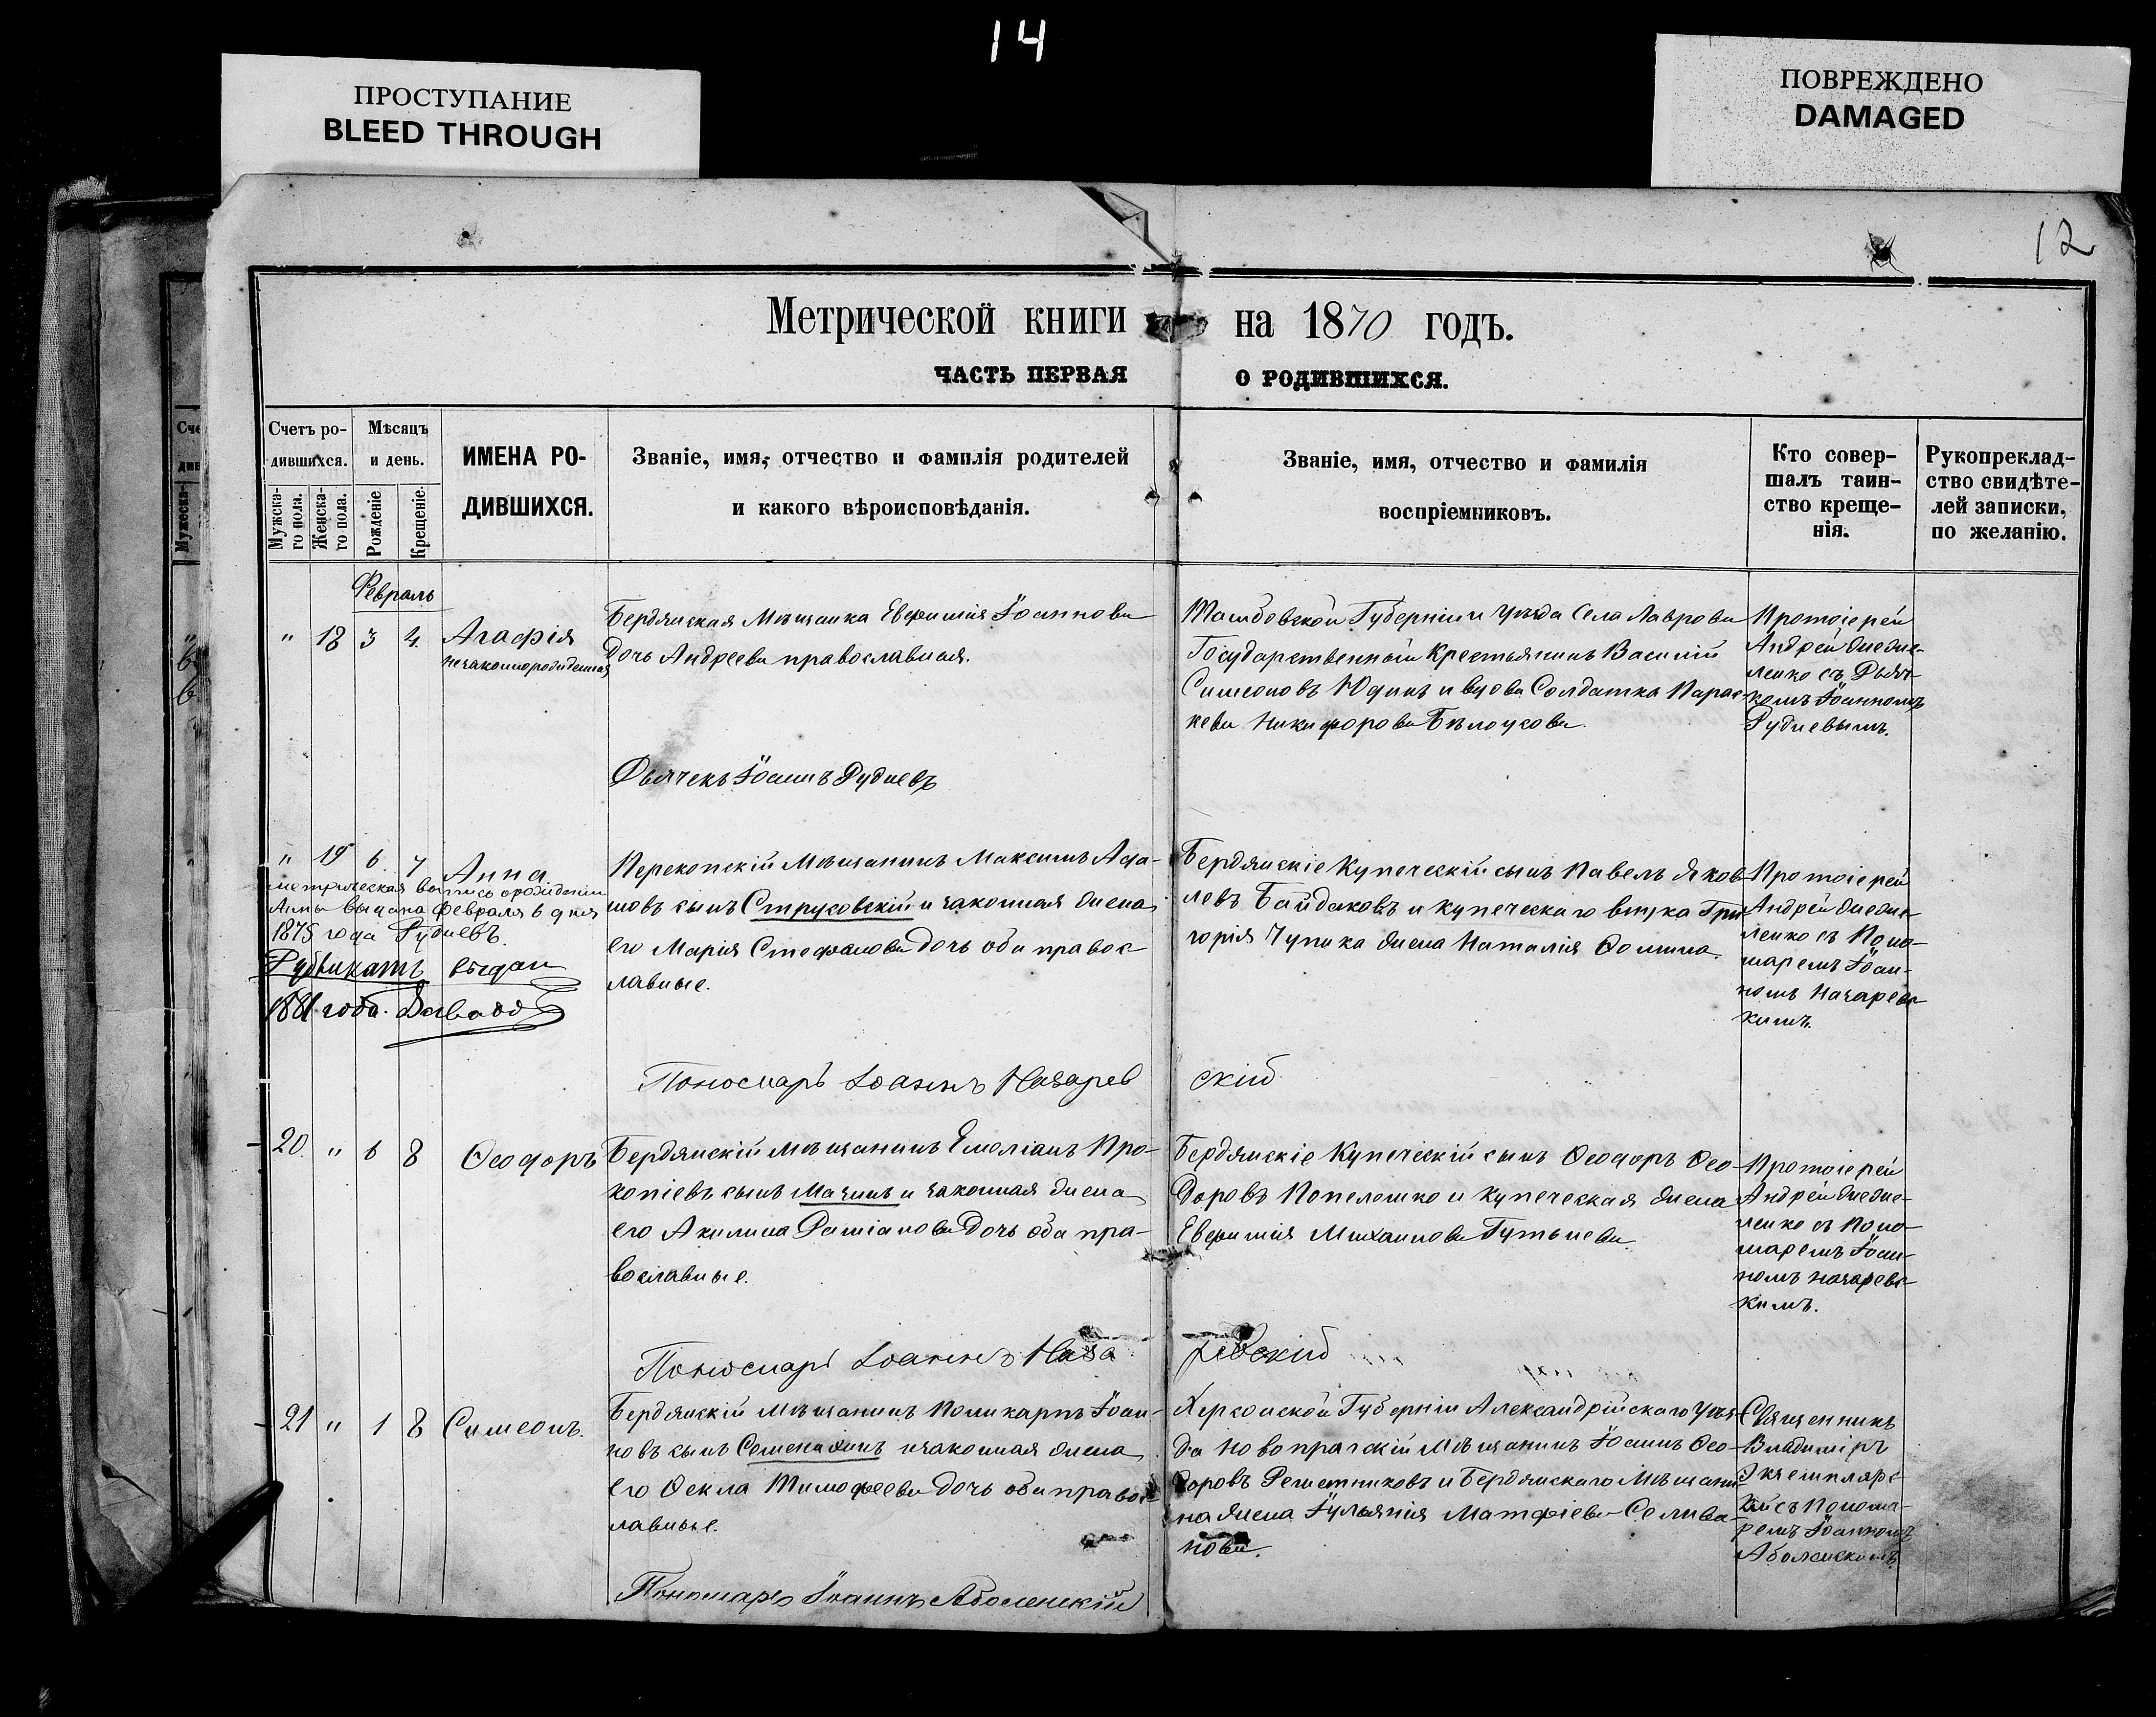 14
ПРОСТУПАНИЕ
BLEED THROUGH
ПОВРЕЖДЕНО
DAMAGED
12
Метрической книги на 1870 годъ.
ЧАСТЬ ПЕРВАЯ О РОДИВШИХСЯ.
Счетъ ро-
дившихся.
Мужска-
го пола.
Женска-
го пола.
Мѣсяцъ
и день.
Рожденіе
Крещеніе.
ИМЕНА РО-
ДИВШИХСЯ.
Званіе, имя, отчество и фамилія родителей
и какого вѣроисповѣданія.
Званіе, имя, отчество и фамилія
воспріемниковъ.
Кто совер-
шалъ таин-
ство креще-
нія.
Рукоприклад-
ство свидѣте-
лей записки,
по желанію.
Февраль
" 18 3 4. Агафія
незаконнорожденная
Бердянская Мѣщанка Евфимія Іоаннова
дочь Андреева православная.
Тамбовской Губерніи и уѣзда Села Лаврова
Государственный Крестьянинъ Василій
Симеоновъ Юдинъ и вдова Солдатка Парас-
кева Никифорова Бѣлоусова.
Протоіерей
Андрей
ленко съ Дьяч-
комъ Іоанномъ
Рудневымъ.
Дьячекъ Іоаннъ Рудневъ
" 19 6. 7 Анна.
метрическая выпись о рожденіи
Анны выдана Февраля 6 дня
1875 года Рудневъ.
выдан
1881 года.
Перекопскій Мѣщанинъ Максимъ Ада-
мовъ сынъ Струковскій и законная жена
его Марія Стефанова дочь оба правос-
лавные.
Бердянскіе Купеческій сынъ Павелъ Яков-
левъ Байдаковъ и купеческаго внука Гри-
горія Чупика жена Наталія Фомина.
Протоіерей
Андрей
ленко съ Поно-
маремъ Іоан-
номъ Назаревс-
кимъ.
Пономарь Іоаннъ Назаревскій
20. " 6 8 Феодоръ
Бердянскій мѣщанинъ Емеліанъ Про-
копіевъ сынъ Мачинъ и законная жена
его Акилина Даміанова дочь оба пра-
вославные.
Бердянскіе Купеческій сынъ Феодоръ Фео-
доровъ Попелешко и купеческая жена
Евфимія Михаилова Гутынева.
Протоіерей
Андрей
ленко съ Поно-
маремъ Іоан-
номъ Назаревс-
кимъ.
Пономарь Іоаннъ Назаревскій
21 " 1 8 Симеонъ.
Бердянскій мѣщанинъ Поликарпъ Іоан-
новъ сынъ Семенихинъ и законная жена
его Фекла Тимофеева дочь оба правос-
лавные.
Херсонской Губерніи Александрійскаго уѣз-
да Новопражскій Мѣщанинъ Іоаннъ Фео-
доровъ Решетниковъ и Бердянскаго Мѣщани-
на жена Іуліянія Матфіева Селива-
нова.
Священникъ
Владиміръ
Экземплярс-
кій съ Понома-
ремъ Іоанномъ
Аболенскимъ
Пономарь Іоаннъ Аболенскій